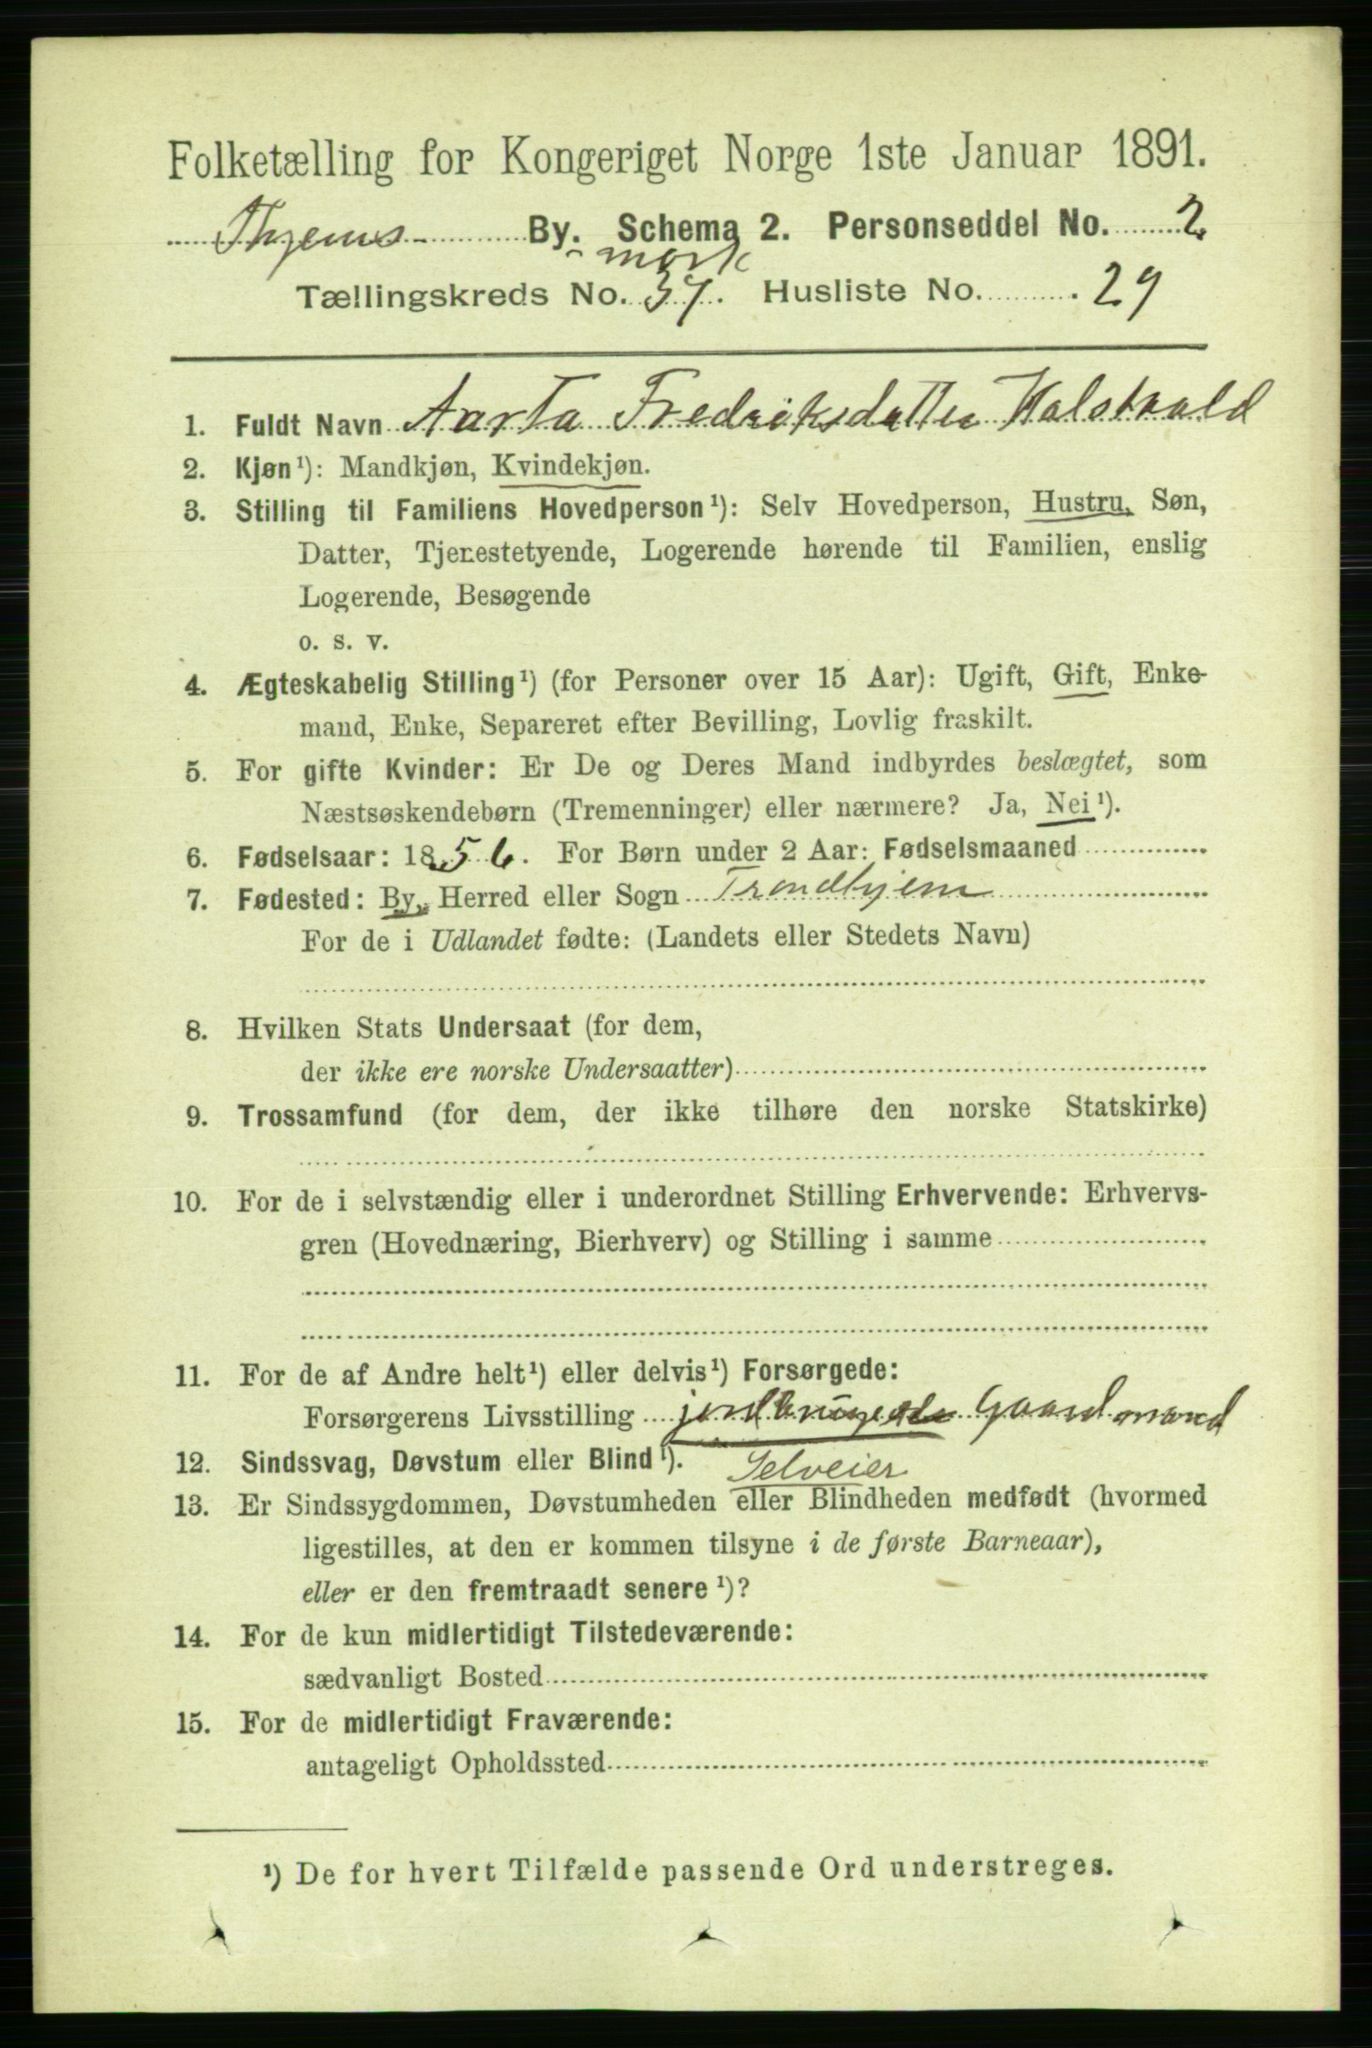 Folketælling for Kongeriget Norge 1ste Januar 1891.
Thjems- By. Schema 2. Personseddel No. 2
-mark
Tællingskreds No. 37. Husliste No. 29
1. Fuldt Navn Aarta Fredriksdatter Halstvald
2. Kjøn¹): Mandkjøn, Kvindekjøn.
3. Stilling til Familiens Hovedperson¹): Selv Hovedperson, Hustru, Søn,
Datter, Tjenestetyende, Logerende hørende til Familien, enslig
Logerende, Besøgende
o. s. v.
4. Ægteskabelig Stilling¹) (for Personer over 15 Aar): Ugift, Gift, Enke-
mand, Enke, Separeret efter Bevilling, Lovlig fraskilt.
5. For gifte Kvinder: Er De og Deres Mand indbyrdes beslægtet, som
Næstsøskendebørn (Tremenninger) eller nærmere? Ja, Nei¹).
6. Fødselsaar: 1856. For Børn under 2 Aar: Fødselsmaaned
7. Fødested: By, Herred eller Sogn Trondhjem
For de i Udlandet fødte: (Landets eller Stedets Navn)
8. Hvilken Stats Undersaat (for dem,
der ikke ere norske Undersaatter)
9. Trossamfund (for dem, der ikke tilhøre den norske Statskirke)
10. For de i selvstændig eller i underordnet Stilling Erhvervende: Erhvervs-
gren (Hovednæring, Bierhverv) og Stilling i samme
11. For de af Andre helt¹) eller delvis¹) Forsørgede:
Forsørgerens Livsstilling jordbrugende Gaardmand
12. Sindssvag, Døvstum eller Blind¹). Selveier
13. Er Sindssygdommen, Døvstumheden eller Blindheden medfødt (hvormed
ligestilles, at den er kommen tilsyne i de første Barneaar),
eller er den fremtraadt senere¹)?
14. For de kun midlertidigt Tilstedeværende:
sædvanligt Bosted
15. For de midlertidigt Fraværende:
antageligt Opholdssted
¹) De for hvert Tilfælde passende Ord understreges.